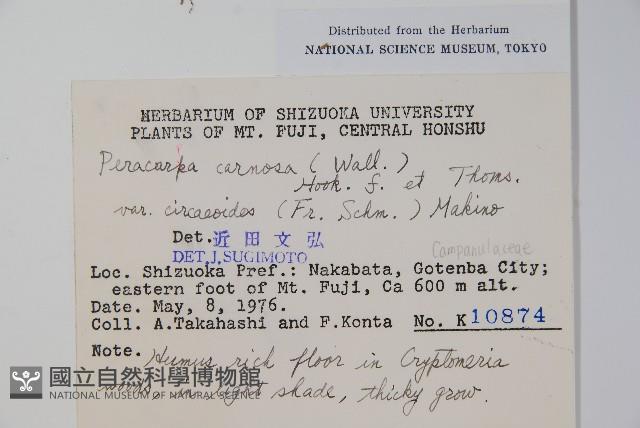 Distributed from the Herbarium
NATIONAL SCIENCE MUSEUM, TOKYO
HERBARIUM OF SHIZUOKA UNIVERSITY
PLANTS OF MT. FUJI, CENTRAL HONSHU
Peracarpa carnosa (Wall.)
Hook. f. et Thoms.
var. circaeoides (Fr. Schm.) Makino
Det. 近田文弘
DET.J.SUGIMOTO
Campanulaceae
Loc. Shizuoka Pref.: Nakabata, Gotenba City;
eastern foot of Mt. Fuji, Ca 600 m alt.
Date. May, 8, 1976.
Coll. A.Takahashi and F.Konta No. K10874
Note. Humus rich floor in Cryptomeria
woods, in light shade, thicky grow.
國立自然科學博物館
NATIONAL MUSEUM OF NATURAL SCIENCE